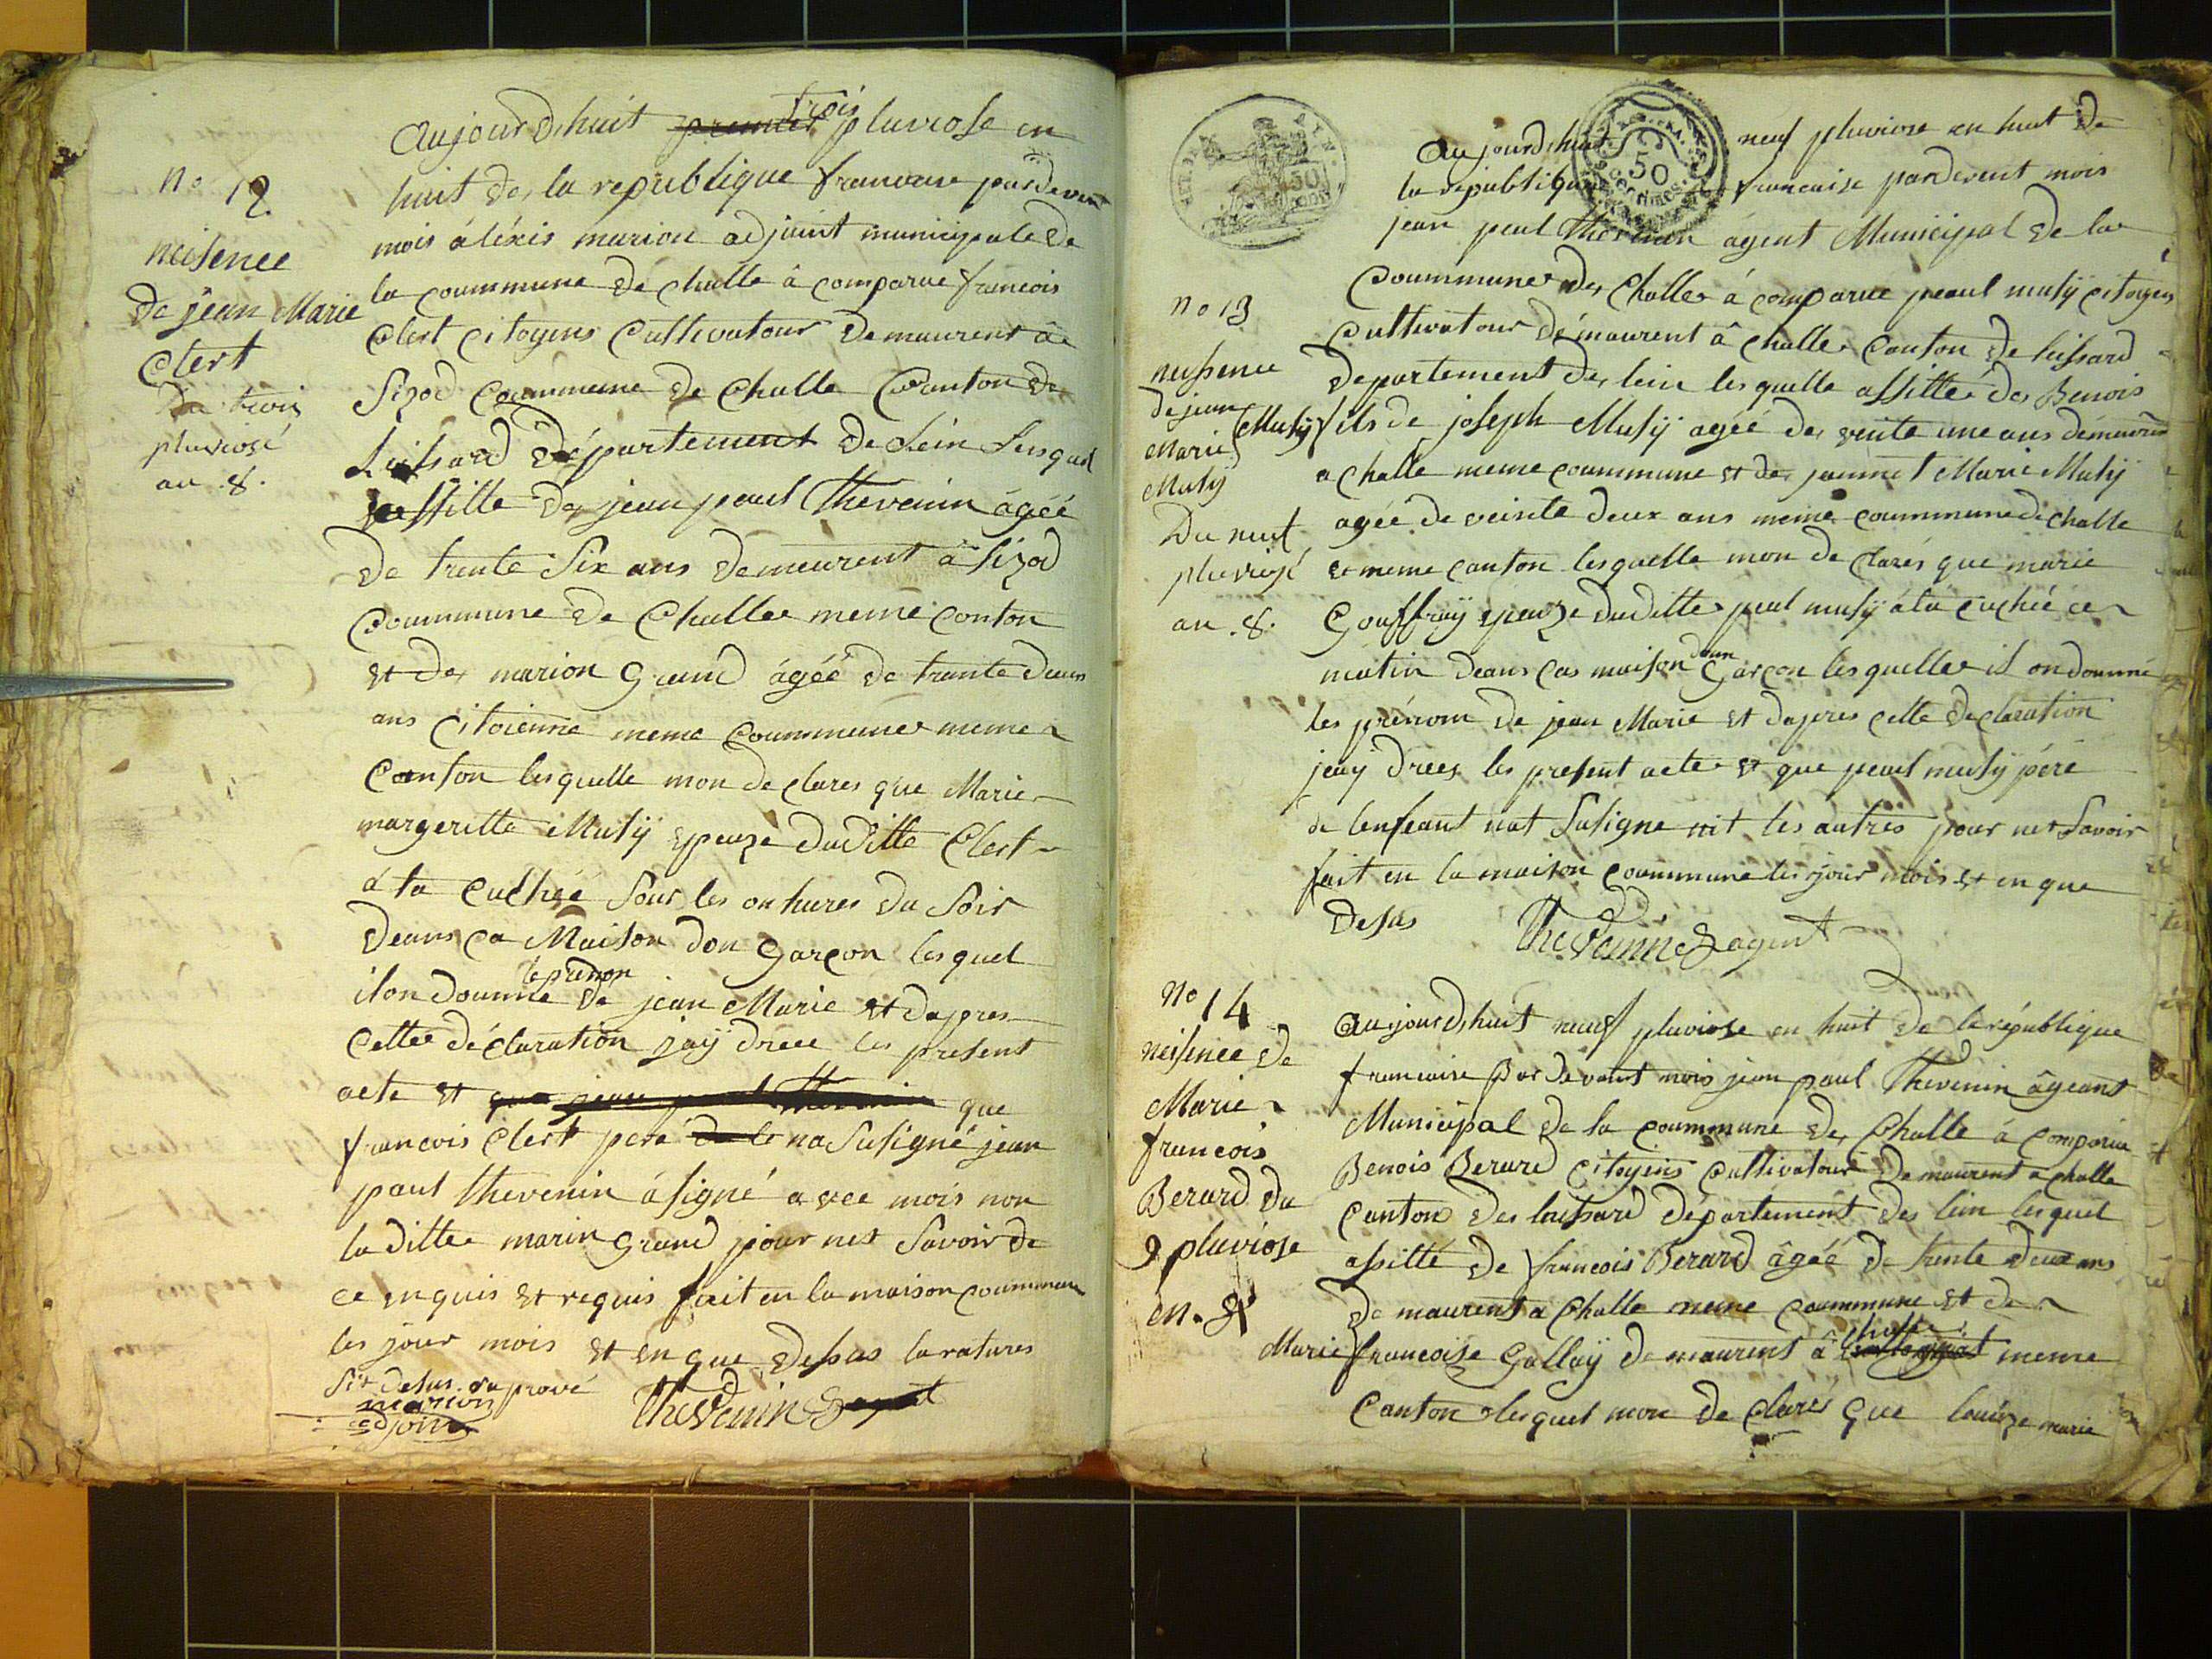 no 12
neisence
de jean Marie
Clert
Du trois
pluviosé
an .8.
trois
aujourdhuit premier pluviose en
huit de la republique francaise pardevent
mois áléxis marion adjoint municipale de
la coummune de challe â comparue francois
Clert citoyens Cultivatour demaurent âe
Sizod coummune de Challe Canton de
Luihard Département de Lein Lesquel
assitte de jean paul Thevenin âgéé
De trente Six ans demeurent â Sizod
Coummune de Challe meme conton
et de marion Grand ágéé de trante deus
ans citoienne meme Coummune meme
Canton lesquelle mon de clares que Marie
margeritte Musÿ epeuze duditte Clert
a ta cuchéé Sour les onhures du Soir
Deans ca Maison don garçon lesquel
le prenon
ilon doumne de jean Marie et dapres
Cette déclaration jaÿ dreee les present
acte et que jean paul Thevenin que
francois Clert pere de le na Susigné jean
paul thevenin ásigné avec mois non
la ditte marin Grand pour net Savoir de
ce enquis et requis fait en la maison coummune
les jour mois et en que desus laratures
Sit desus aprové
marion
adjoint
Thevenin agent
50
no 13
neissence
de jean
Marie
Musÿ
Du neuf
pluviosé
an .8.
aujourdhuit neuf pluviose en huit de
la republique francaise pardevent mois
jean paul thevenin ágent Municipal de la
Coummune de Challe á comparue peaul musÿ citoyens
Cultivatour démaurent â Challe Canton de luihard
Departement de lein lesquelle assitté de Benois
Musÿ fils de joseph Musÿ agéé de vente une ans démeurent
a Challe meme coummune et de jeannet Marie Musÿ
agéé de veinte deux ans meme coummune de Challe
et meme canton lesquelle mon de clarés que marie
Gouffraÿ epeuze duditte peul musÿ áta cuchéé ce
doun
matin deans cas maison Garcon lesquelle il on doumné
les prénom de jean Marie et dapres cette declaration
jeaÿ drees les present acte et que peaul musÿ péré
de lenfeant nat Susigne nit les autres pour net Savoir
fait en la maison coummune les jour mois et en que
desus
Thevenin agent
no 14
neisence de
Marie
francois
Berard du
9 pluviose
en. 8
aujourdhuit neuf pluviose en huit de la république
francaise par devant mois jean paul Thevenin âgeant
Municipal de la coummune de Challe á comparue
Benois Berard citoyens Cultivatour demaurent a Challe
Canton de luihard département de lein lesquel
assitté de francois Berard âgéé de trente deux ans
De maurent a Challe meme coummune et de
Challe
Marie francoise Gallaÿ demaurent â meme
Canton lesquel mon de clarés que louize marie